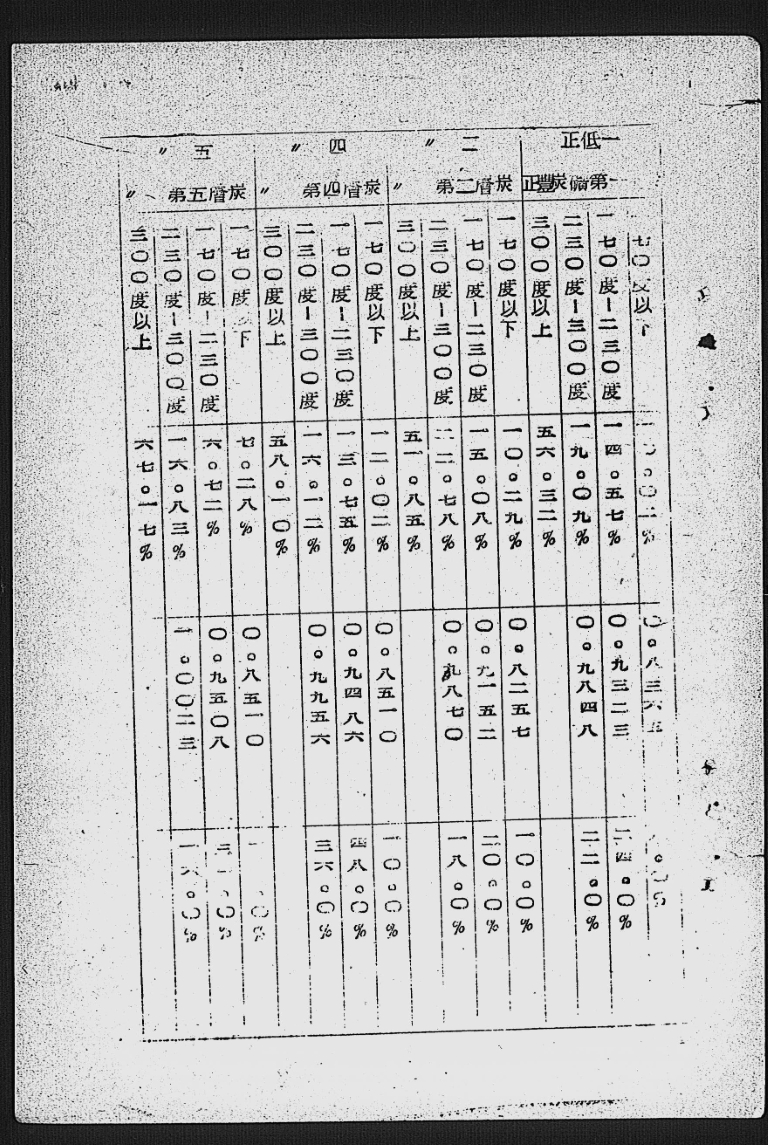 一低正
第一礦炭豐正
七〇度以下
一七〇度—二三〇度 一四。五七% 〇。九三二三 二四。〇%
二三〇度—三〇〇度 一九。〇九% 〇。九八四八 二二。〇%
三〇〇度以上 五六。三二%
二 〃
第二層炭 〃
一七〇度以下 一〇。二九% 〇。八二五七 一〇。〇%
一七〇度—二三〇度 一五。〇八% 〇。九一五二 二〇。〇%
二三〇度—三〇〇度 二二。七八% 〇。九八七〇 一八。〇%
三〇〇度以上 五一。八五%
四 〃
第四層炭 〃
一七〇度以下 一二。〇二% 〇。八五一〇 一〇。〇%
一七〇度—二三〇度 一三。七五% 〇。九四八六 四八。〇%
二三〇度—三〇〇度 一六。一二% 〇。九九五六 三六。〇%
三〇〇度以上 五八。一〇%
五 〃
第五層炭 〃
一七〇度以下 七。二八% 〇。八五一〇
一七〇度—二三〇度 六。七二% 〇。九五〇八
二三〇度—三〇〇度 一六。八三% 一。〇〇二三 一六。〇%
三〇〇度以上 六七。一七%